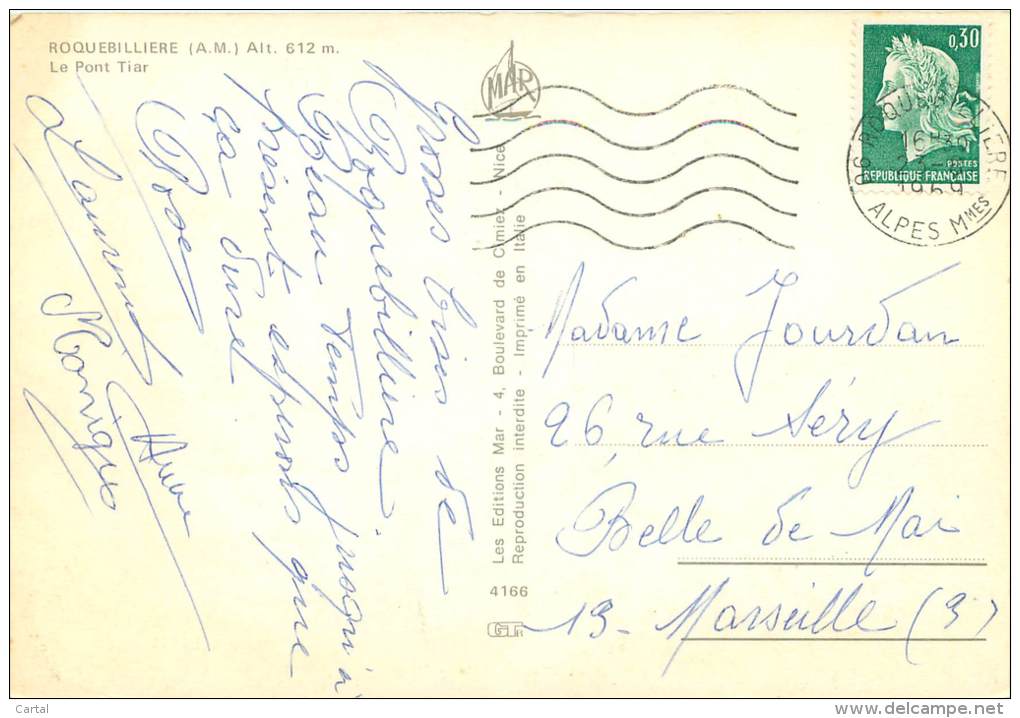 ROQUEBILLIERE (A.M.) Alt. 612 m.
Le Pont Tiar
MAR
0,30
POSTES
REPUBLIQUE FRANÇAISE
06 ROQUEBILLIERE
1969
ALPES MMES
Grosses bises de
Roquebillière.
Beau temps jusqu'à
présent espérons que
ça dure
Rose
Laurent
Anne
Monique
Les Editions Mar - 4, Boulevard de Cimiez - Nice
Reproduction interdite - Imprimé en Italie
4166
Madame Jourdan
26 rue Séry
Belle de Mai
13 - Marseille (3)
Cartal
www.delcampe.net